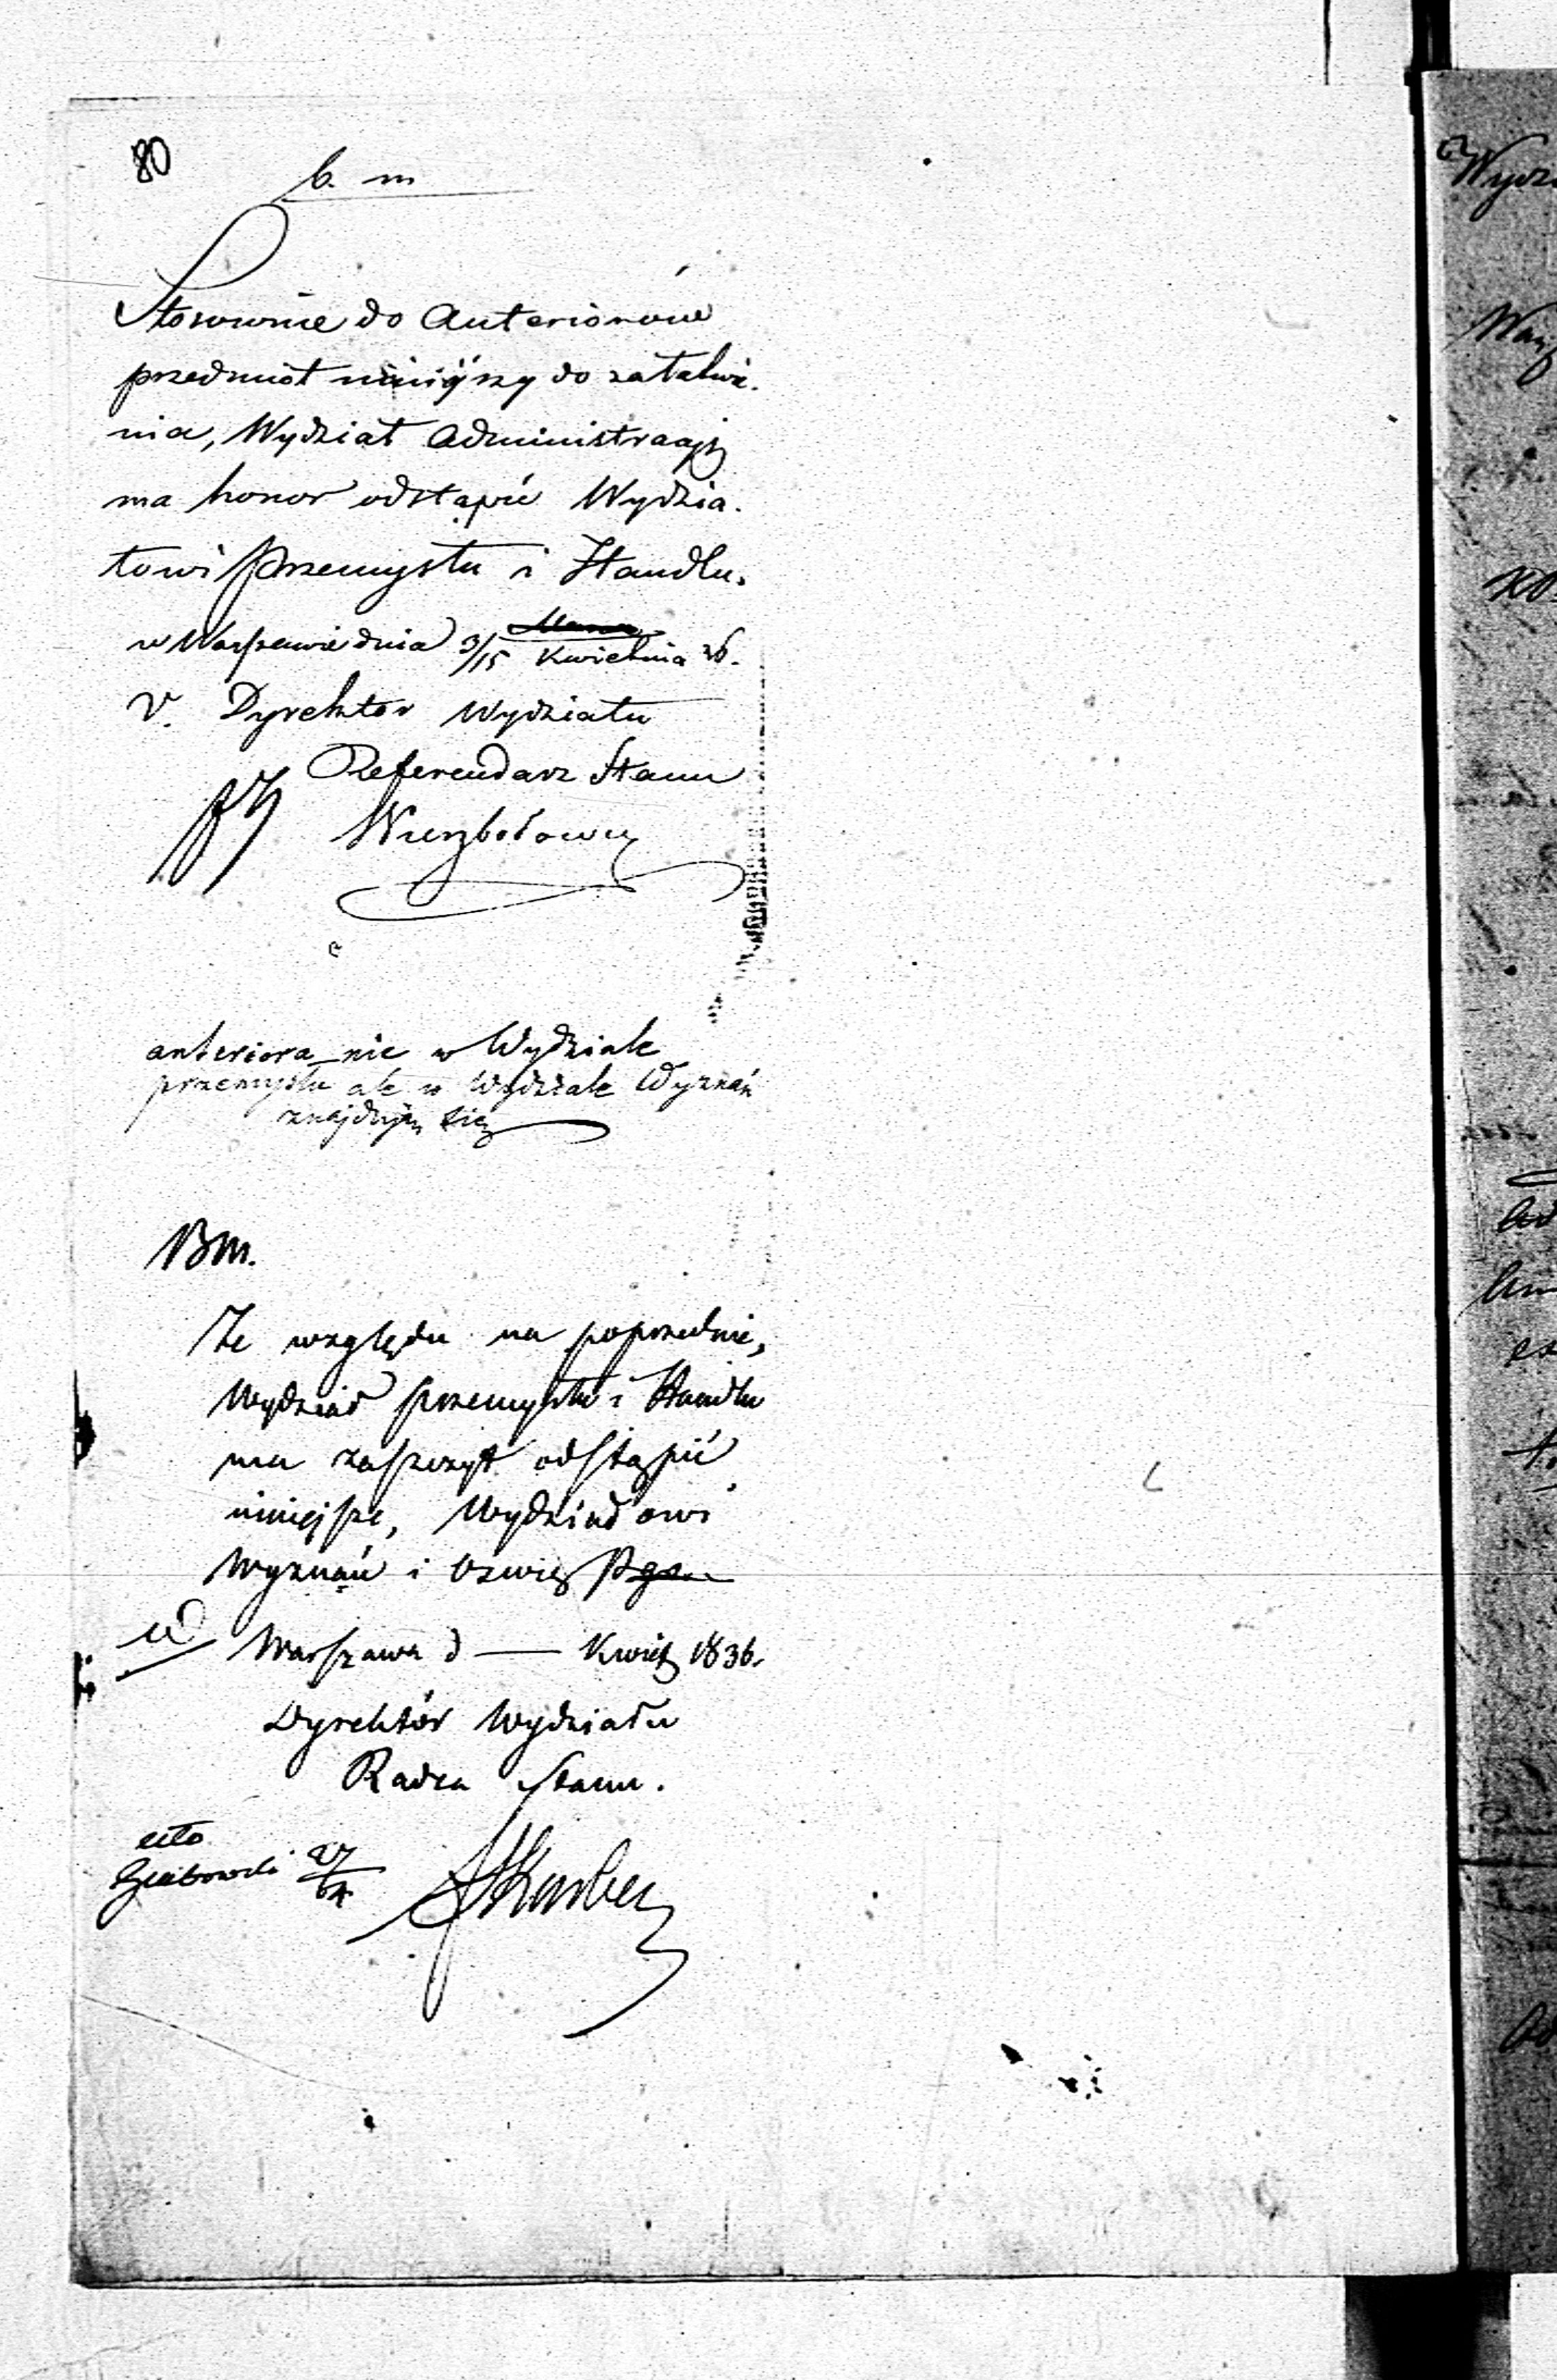 80
b. m
Stosownie do Anteriorów
przedmiot niniéyszy do załatwie.
nia, Wydział Administracyi
ma honor odstąpić Wydzia.
łowi Przemysłu i Handlu.
w Warszawie dnia 3/15 Kwietnia 36.
V. Dyrektor Wydziału
Referendarz Stanu
anteriora nie w Wydziale
przemysłu ale w Wydziale Wyznań
znajdują się
BM.
Ze względu na poprzednie,
Wydział przemysłu i Handlu
ma zaszczyt odstąpić
niniejsze, Wydziałowi
Wyznań i Oświe
Warszawa d — Kwiet 1836.
Dyrektór Wydziału
Radca Stanu.
27